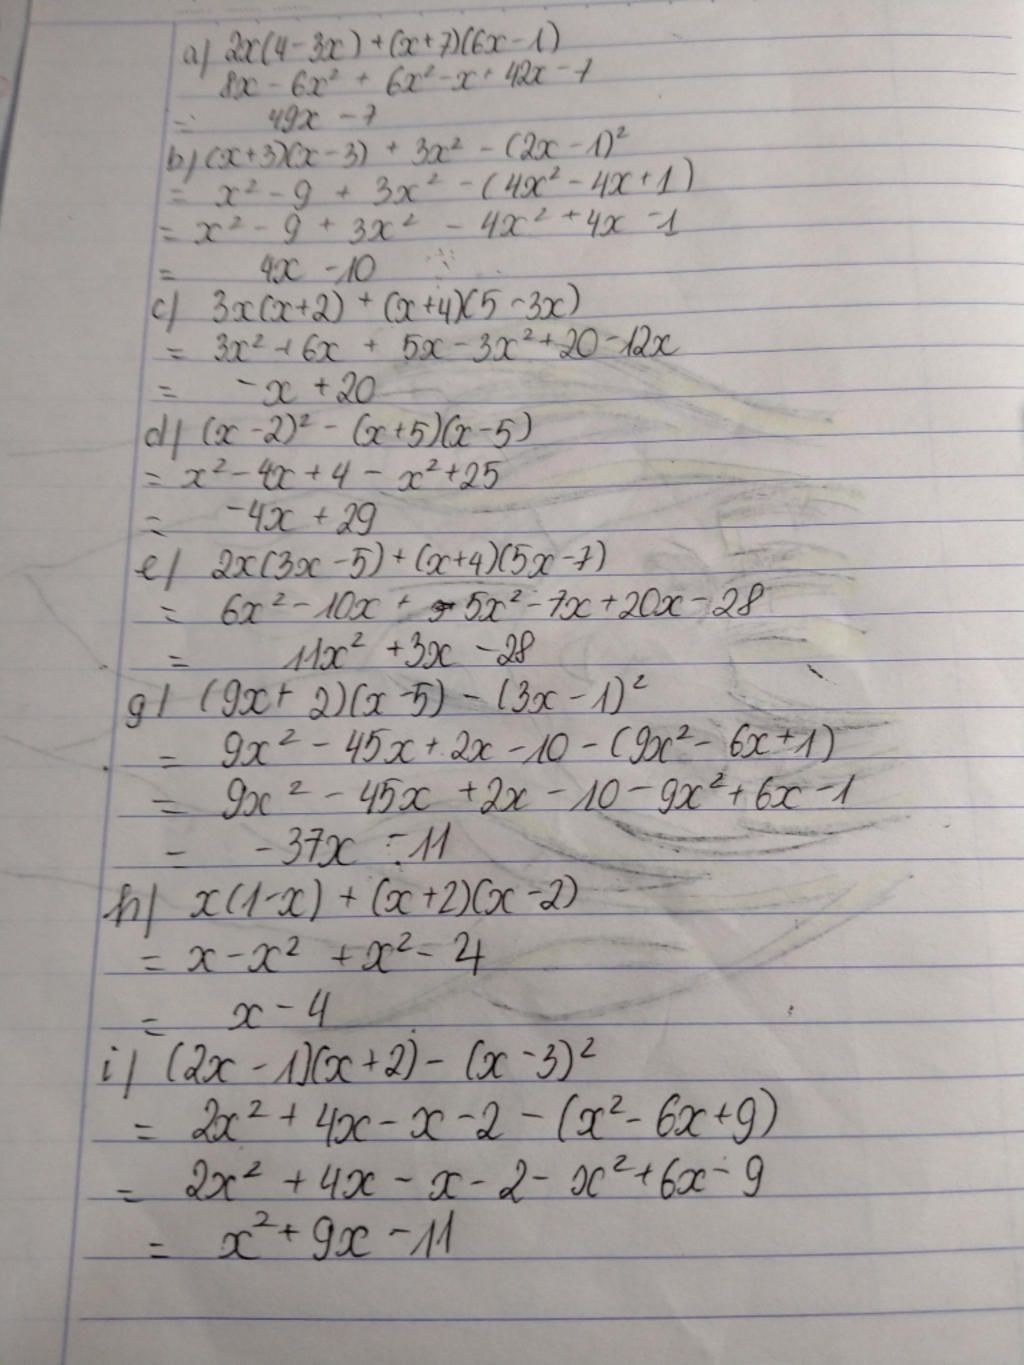 a) 2x(4-3x) + (x+7)(6x-1)
8x - 6x² + 6x² - x + 42x - 7
= 49x - 7
b) (x+3)(x-3) + 3x² - (2x-1)²
= x² - 9 + 3x² - (4x² - 4x + 1)
= x² - 9 + 3x² - 4x² + 4x - 1
= 4x - 10
c) 3x(x+2) + (x+4)(5-3x)
= 3x² + 6x + 5x - 3x² + 20 - 12x
= -x + 20
d) (x-2)² - (x+5)(x-5)
= x² - 4x + 4 - x² + 25
= -4x + 29
e) 2x(3x-5) + (x+4)(5x-7)
= 6x² - 10x + 5x² - 7x + 20x - 28
= 11x² + 3x - 28
g) (9x+2)(x-5) - (3x-1)²
= 9x² - 45x + 2x - 10 - (9x² - 6x + 1)
= 9x² - 45x + 2x - 10 - 9x² + 6x - 1
= -37x - 11
h) x(1-x) + (x+2)(x-2)
= x - x² + x² - 4
= x - 4
i) (2x-1)(x+2) - (x-3)²
= 2x² + 4x - x - 2 - (x² - 6x + 9)
= 2x² + 4x - x - 2 - x² + 6x - 9
= x² + 9x - 11